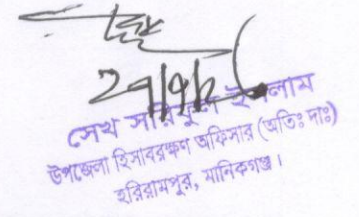 ২৭/৭/১৮
সেখ সরিফুল ইসলাম
উপজেলা হিসাবরক্ষণ অফিসার (অতিঃ দাঃ)
হরিরামপুর, মানিকগঞ্জ।